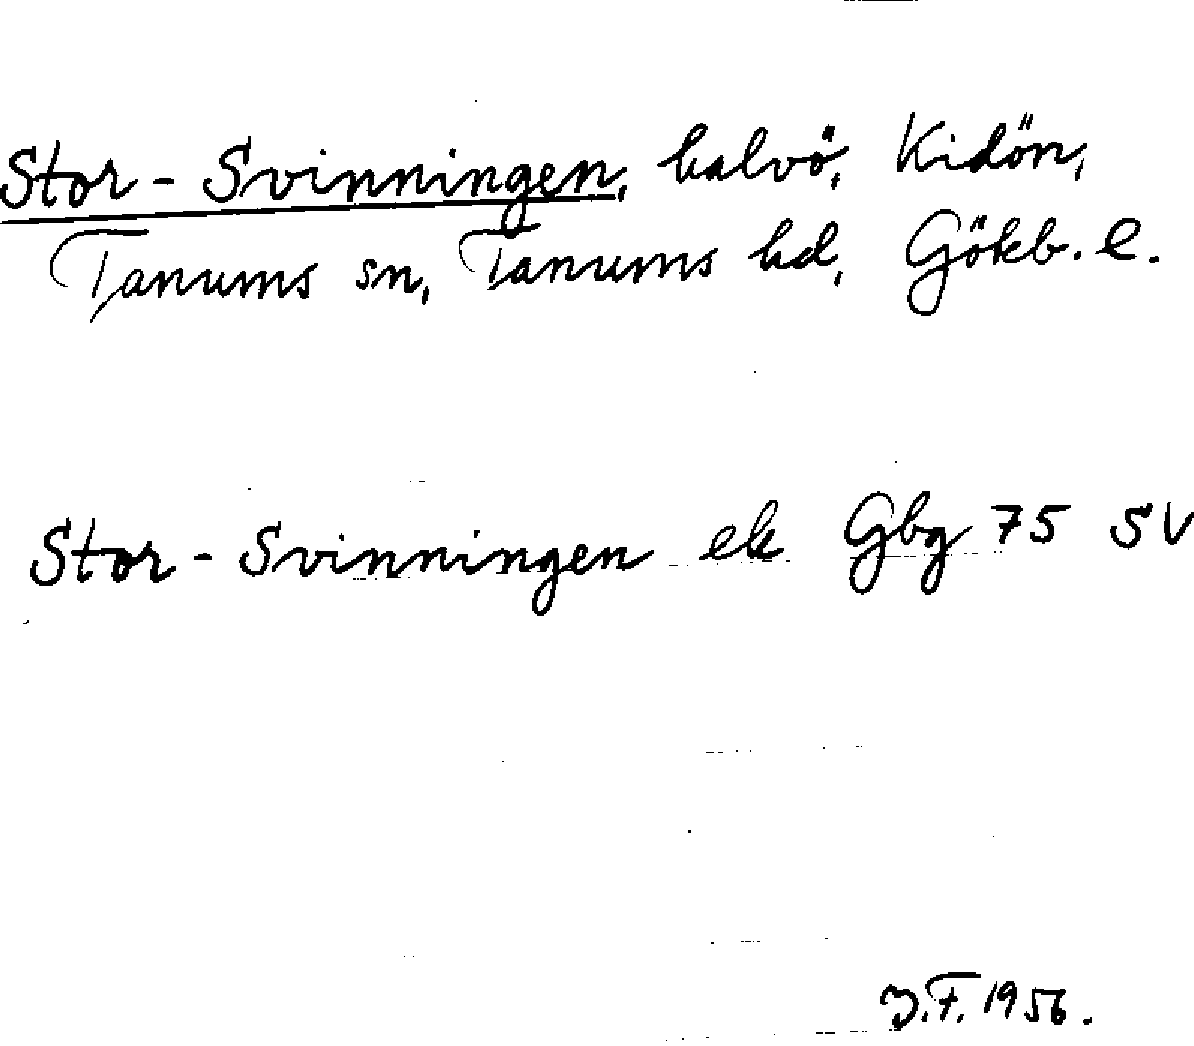 Stor-Svinningen, halvö, Kidön,
Tanums sn, Tanums hd, Gökb. l.
Stor-Svinningen ek Gbg 75 SV
J.F. 1956.